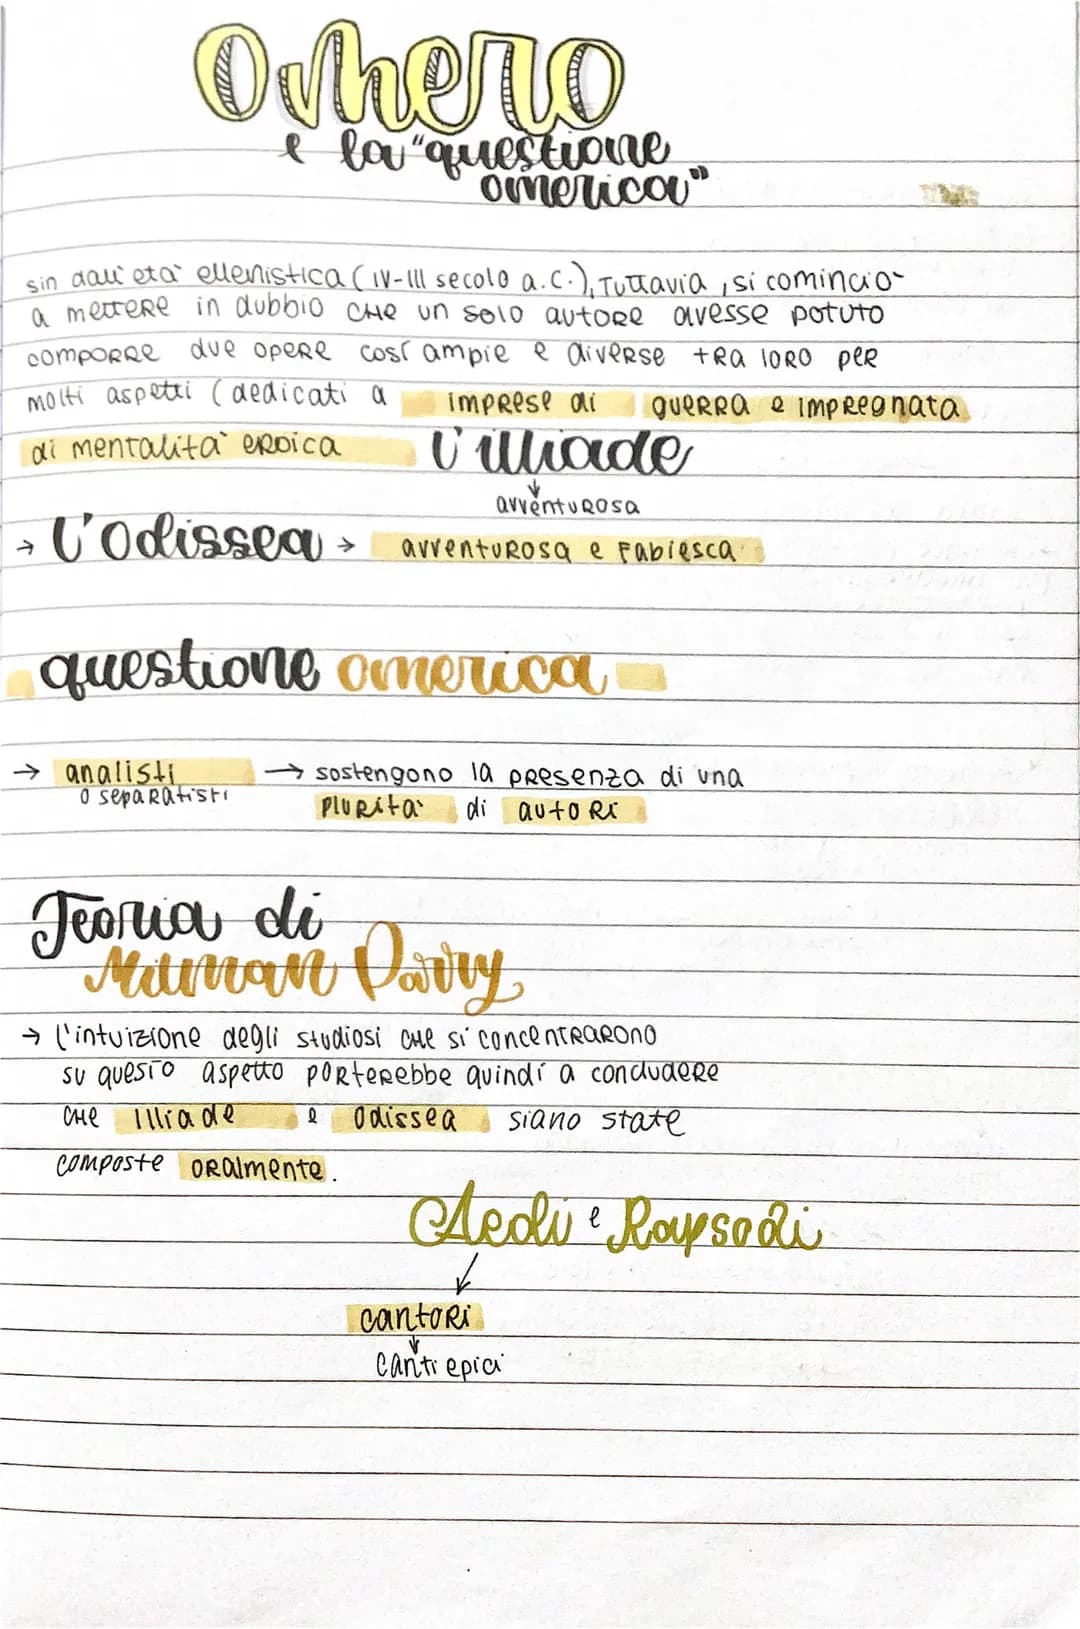 Omero
e la "questione
omerica"
sin dall'età ellenistica (IV-III secolo a.C.), Tuttavia, si cominciò
a mettere in dubbio che un solo autore avesse potuto
comporre due opere così ampie e diverse tra loro per
molti aspetti (dedicati a imprese di guerra e impregnata
di mentalità eroica l'illiade
avventurosa
→ l'Odissea > avventurosa e fabiesca
questione omerica
→ analisti → sostengono la presenza di una
o separatisti plurità di autori
Teoria di
Milman Parry
→ l'intuizione degli studiosi che si concentrarono
su questo aspetto porterebbe quindi a concludere
che Illiade e Odissea siano state
composte oralmente.
Aedi e Rapsodi
cantori
canti epici